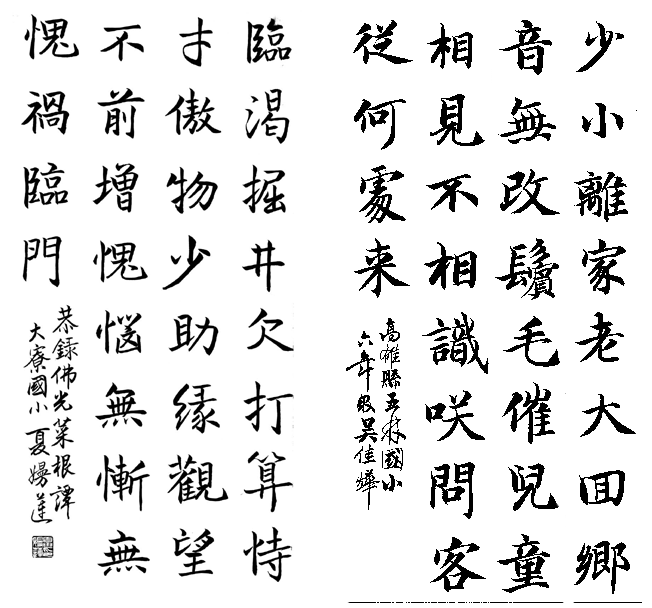 少小離家老大囬鄉
音無改鬢毛催兒童
相見不相識咲問客
從何處来
高雄縣五林國小
六年級吳佳燁
臨渴掘井欠打算恃
才傲物少助緣觀望
不前增愧惱無慚無
愧禍臨門
恭錄佛光菜根譚
大寮國小夏嫚蓮